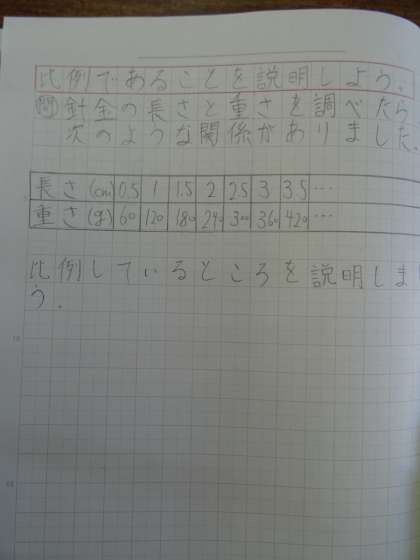 比例であることを説明しよう。
問 針金の長さと重さを調べたら
次のような関係がありました。
長さ(cm) 0.5 1 1.5 2 2.5 3 3.5 …
重さ(g) 60 120 180 240 300 360 420 …
比例しているところを説明しま
う.